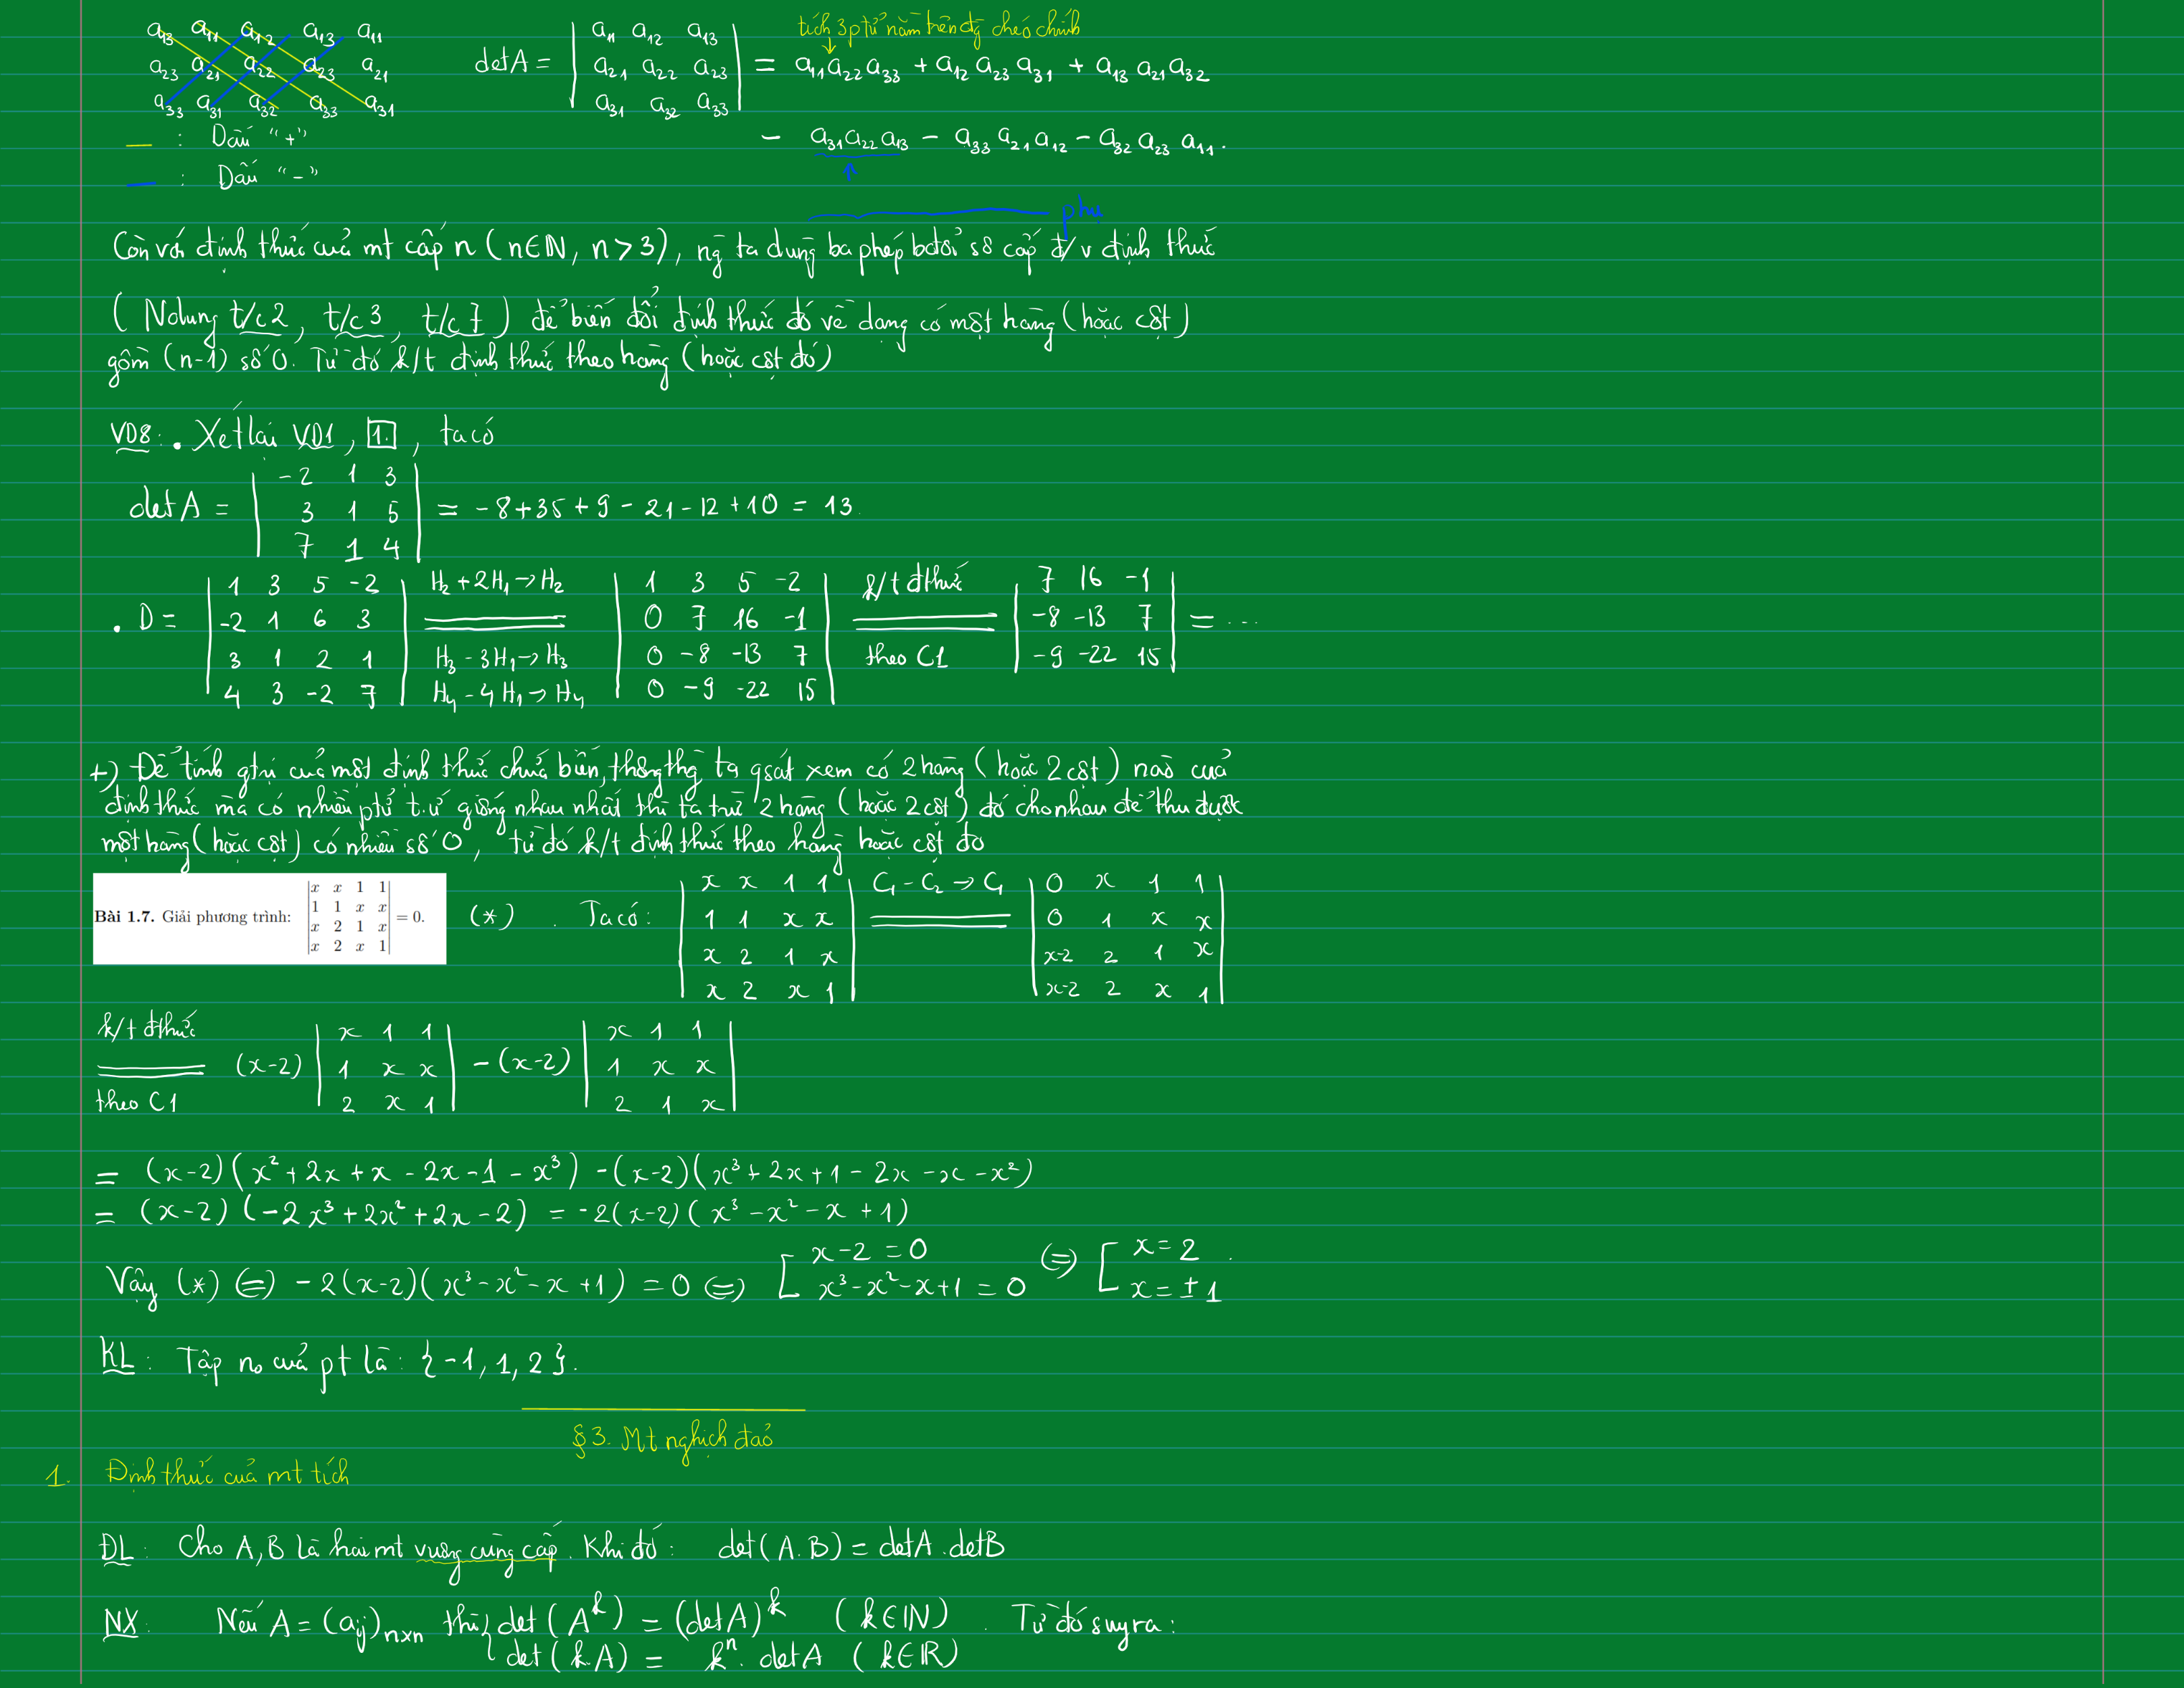 a13 a11 a12 a13 a11
a23 a21 a22 a23 a21
a33 a31 a32 a33 a31
— : Dấu "+"
— : Dấu "-"
tích 3 ptử nằm trên đg chéo chính
detA = | a11 a12 a13 | = a11 a22 a33 + a12 a23 a31 + a13 a21 a32
| a21 a22 a23 |
| a31 a32 a33 |
- a31 a22 a13 - a33 a21 a12 - a32 a23 a11.
phụ
Còn với định thức của mt cấp n (n∈N, n>3), ng ta dùng ba phép bđổi sơ cấp đ/v định thức
(Ndung t/c2, t/c3, t/c7) để biến đổi định thức đó về dạng có một hàng (hoặc cột)
gồm (n-1) số 0. Từ đó k/t định thức theo hàng (hoặc cột đó)
VD8: • Xét lại VD1, 1., ta có
detA = | -2 1 3 | = -8+35+9-21-12+10 = 13.
| 3 1 5 |
| 7 1 4 |
• D = | 1 3 5 -2 | H2+2H1→H2 | 1 3 5 -2 | k/t đthức | 7 16 -1 | = ...
| -2 1 6 3 | | 0 7 16 -1 | | -8 -13 7 |
| 3 1 2 1 | H3-3H1→H3 | 0 -8 -13 7 | theo C1 | -9 -22 15 |
| 4 3 -2 7 | H4-4H1→H4 | 0 -9 -22 15 |
+) Để tính gtrị của một định thức chứa biến, thông thg ta qsát xem có 2 hàng (hoặc 2 cột) nào của
định thức mà có nhiều ptử t.ứ giống nhau nhất thì ta trừ 2 hàng (hoặc 2 cột) đó cho nhau để thu được
một hàng (hoặc cột) có nhiều số 0, từ đó k/t định thức theo hàng hoặc cột đó
Bài 1.7. Giải phương trình: | x x 1 1 | = 0.
| 1 1 x x |
| x 2 1 x |
| x 2 x 1 |
(*) . Ta có: | x x 1 1 | C1-C2→C1 | 0 x 1 1 |
| 1 1 x x | | 0 1 x x |
| x 2 1 x | | x-2 2 1 x |
| x 2 x 1 | | x-2 2 x 1 |
k/t đthức theo C1 (x-2) | x 1 1 | -(x-2) | x 1 1 |
| 1 x x | | 1 x x |
| 2 x 1 | | 2 1 x |
= (x-2)(x²+2x+x-2x-1-x³) -(x-2)(x³+2x+1-2x-x-x²)
= (x-2)(-2x³+2x²+2x-2) = -2(x-2)(x³-x²-x+1)
Vậy (*) ⇔ -2(x-2)(x³-x²-x+1) = 0 ⇔ [ x-2=0 ⇔ [ x=2 .
x³-x²-x+1=0 x=±1
KL: Tập no của pt là: {-1, 1, 2}.
§3. Mt nghịch đảo
1. Định thức của mt tích
ĐL: Cho A, B là hai mt vuông cùng cấp. Khi đó: det(A.B) = detA.detB
NX: Nếu A = (aij)nxn thì { det(A^k) = (detA)^k (k∈N) . Từ đó suy ra:
det(k.A) = k^n. detA (k∈R)